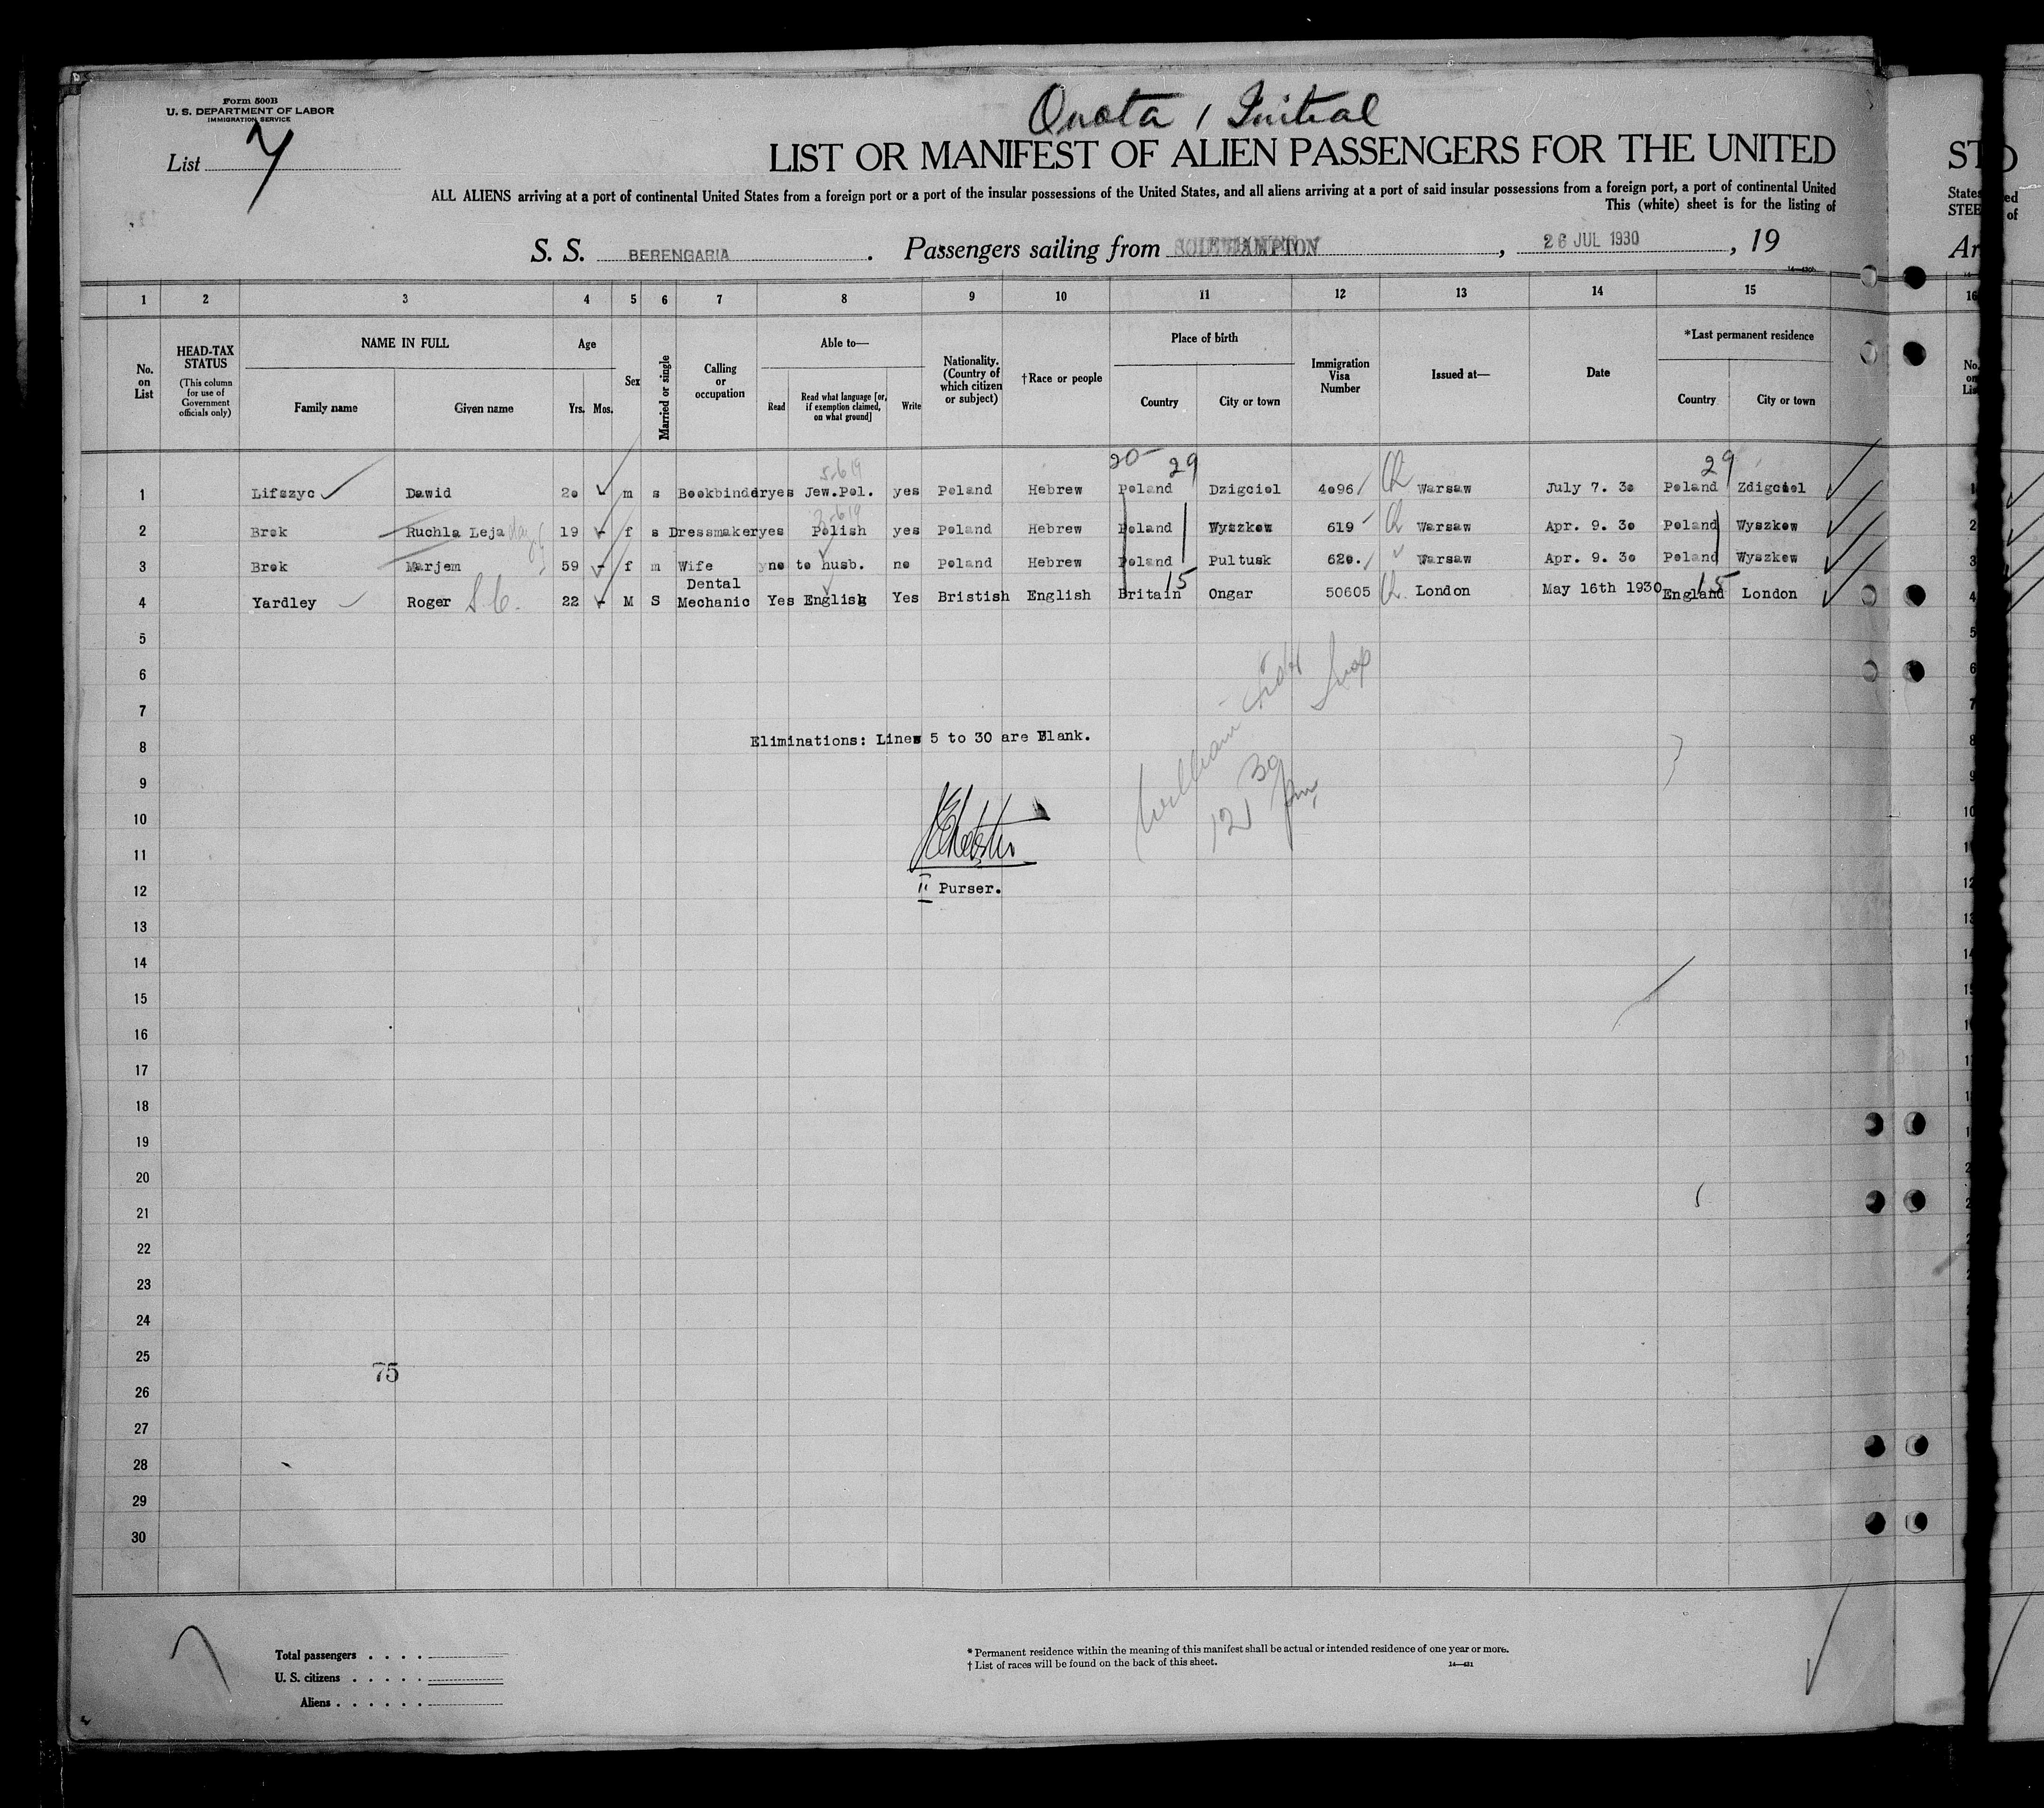 Quota / Initial
Form 500B
U. S. DEPARTMENT OF LABOR
IMMIGRATION SERVICE
List 7
LIST OR MANIFEST OF ALIEN PASSENGERS FOR THE UNITED
ALL ALIENS arriving at a port of continental United States from a foreign port or a port of the insular possessions of the United States, and all aliens arriving at a port of said insular possessions from a foreign port, a port of continental United
This (white) sheet is for the listing of
S. S. BERENGARIA. Passengers sailing from SOUTHAMPTON, 26 JUL 1930, 19
1 2 3 4 5 6 7 8 9 10 11 12 13 14 15
No. on List
HEAD-TAX STATUS
(This column for use of Government officials only)
NAME IN FULL
Family name Given name
Age
Yrs. Mos.
Sex
Married or single
Calling or occupation
Able to—
Read
Read what language [or, if exemption claimed, on what ground]
Write
Nationality. (Country of which citizen or subject)
†Race or people
Place of birth
Country City or town
Immigration Visa Number
Issued at—
Date
*Last permanent residence
Country City or town
20 29 29
1 Lifszyc Dawid 20 - m s Bookbinder yes Jew.Pol. yes Poland Hebrew Poland Dzigciol 4096 Warsaw July 7. 30 Poland Zdigciol
2 Brok Ruchla Leja 19 - f s Dressmaker yes Polish yes Poland Hebrew Poland Wyszkow 619 Warsaw Apr. 9. 30 Poland Wyszkow
3 Brok Marjem 59 - f m Wife no to husb. no Poland Hebrew Poland Pultusk 620. Warsaw Apr. 9. 30 Poland Wyszkow
15 15
4 Yardley Roger S.C. 22 - M S Dental Mechanic Yes English Yes Bristish English Britain Ongar 50605 London May 16th 1930 England London
5
6
7
8 Eliminations: Lines 5 to 30 are Blank.
William
12 30 pm
9
10
11
12 II Purser.
13
14
15
16
17
18
19
20
21
22
23
24
25
75
26
27
28
29
30
Total passengers . . . .
U. S. citizens . . . . .
Aliens . . . . . .
* Permanent residence within the meaning of this manifest shall be actual or intended residence of one year or more.
† List of races will be found on the back of this sheet.
14—431